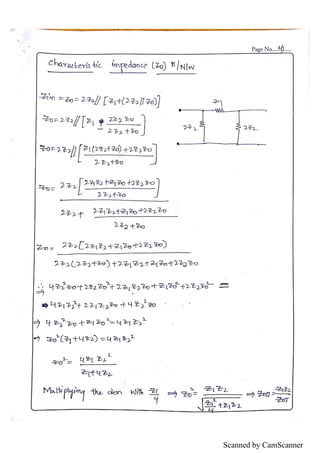 Page No. 19
Characteristic impedance (Z0) π/N/w
Zin = Z0 = 2Z2 // [Z1 + (2Z2 // Z0)]
Z1
Z0 = 2Z2 // [Z1 + 2Z2 Z0 / 2Z2 + Z0]
2Z2 2Z2
Z0 = 2Z2 // [Z1(2Z2+Z0) + 2Z2Z0 / 2Z2+Z0]
Z0 = 2Z2 [2Z1Z2 + Z1Z0 + 2Z2Z0 / 2Z2+Z0]
2Z2 + 2Z1Z2 + Z1Z0 + 2Z2Z0 / 2Z2 + Z0
Z0 = 2Z2 [2Z1Z2 + Z1Z0 + 2Z2Z0)
2Z2(2Z2+Z0) + 2Z1Z2 + Z1Z0 + 2Z2Z0
∴ 4Z2²Z0 + 2Z2Z0² + 2Z1Z2Z0 + Z1Z0² + 2Z2Z0² =
4Z1Z2² + 2Z1Z2Z0 + 4Z2²Z0
⇒ 4Z2Z0² + Z1Z0² = 4Z1Z2²
⇒ Z0²(Z1+4Z2) = 4Z1Z2²
Z0² = 4Z1Z2² / Z1+4Z2
Multiplying the den with Z1/4 ⇒ Z0 = Z1Z2 / √(Z1²/4 + Z1Z2) ⇒ Z0π = Z1Z2 / Z0T
Scanned by CamScanner